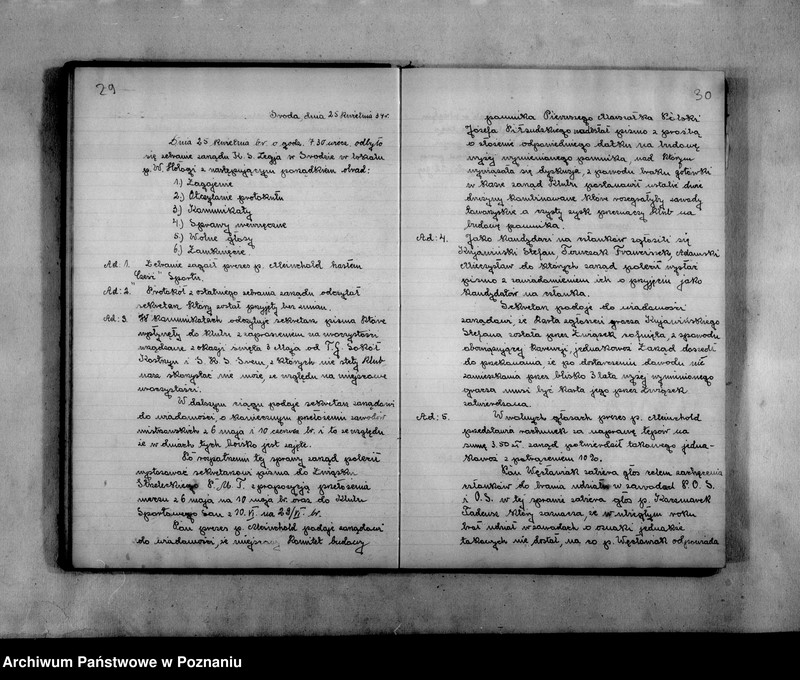 29
Środa dnia 25 kwietnia 34 r.
Dnia 25 kwietnia br. o godz. 7 30 wiecz. odbyło
się zebranie zarządu K. S. Legja w Środzie w lokalu
p. W. Hologi z następującym porządkiem obrad:
1.) Zagajenie
2.) Odczytanie protokułu
3.) Komunikaty
4.) Sprawy wewnęczne
5.) Wolne głosy
6.) Zamknięcie
Ad: 1. Zebranie zagaił prezes p. Meinchold hasłem
"Cześć" Sportu.
Ad: 2. Protokół z ostatniego zebrania zarządu odczytał
sekretarz który został przyjęty bez zmian.
Ad: 3. W komunikatach odczytuje sekretarz pisma które
wpłynęły do klubu z zaproszeniem na uroczystości
urządzane z okazji święta 3 Maja od T. G. Sokół
Kostrzyn i S. K. S. Śrem, z których nie stety klub
nasz skorzystać nie może, ze względu na miejscowe
uroczystości.
W dalszym ciągu podaje sekretarz zarządowi
do wiadomości, o koniecznym przełożeniu zawodów
mistrzowskich z 6 maja i 10 czerwca br. i to ze względu
że w dniach tych boisko jest zajęte.
Po rozpatrzeniu tej sprawy zarząd polecił
wystosować sekretarzowi pisma do Związku
Strzeleckiego P. M. T. z propozycją przełożenia
meczu z 6 maja na 10 maja br. oraz do Klubu
Sportowego San z 10. VI na br.
Pan prezes p. Meinchold podaje zarządowi
do wiadomości, że miejscowy Komitet budowy
30
pomnika Pierwszego Marszałka Polski
Józefa Piłsudskiego nadesłał pismo z prośbą
o złożenie odpowiedniego datku na budowę
wyżej wymienianego pomnika, nad którym
wywiązała się dyskusja, z powodu braku gotówki
w kasie zarząd Klubu postanowił ustalić dwie
drużyny kombinowane które rozegrałyby zawody
towarzyskie a czysty zysk przeznaczy klub na
budowę pomnika.
Ad: 4. Jako kandydaci na członków zgłosili się
Kujawiński Stefan, Franciszek, Adamski
Mieczysław do których zarząd polecił wysłać
pismo z zawiadomieniem ich o przyjęciu jako
kandydatów na członka.
Sekretarz podaje do wiadomości
zarządowi, że karta zgłoszeń gracza Kujawińskiego
Stefana została przez Związek cofnięta, z powodu
obowiązującej karencji, jednakowoż Zarząd doszedł
do przekonania, że po dostarczeniu dowodu nie
zamieszkania przez blisko 3 lata wyżej wymienionego
gracza musi być karta jego przez Związek
zatwierdzona.
Ad: 5. W wolnych głosach prezes p. Meinchold
przedstawia rachunek za naprawę butów na
sumę 3.50 zł. zarząd potwierdził takowego jedna-
kowoż z potrąceniem 10%.
Pan Węsławiak zabiera głos celem zachęcenia
członków do brania udziału w zawodach P. O. S.
i O. S. w tej sprawie zabiera głos p. Kaczmarek
Tadeusz który zaznacza, że w ubiegłym roku
brał udział w zawodach o oznaki jednakże
takowych nie dostał, na co p. Węsławiak odpowiada
Archiwum Państwowe w Poznaniu